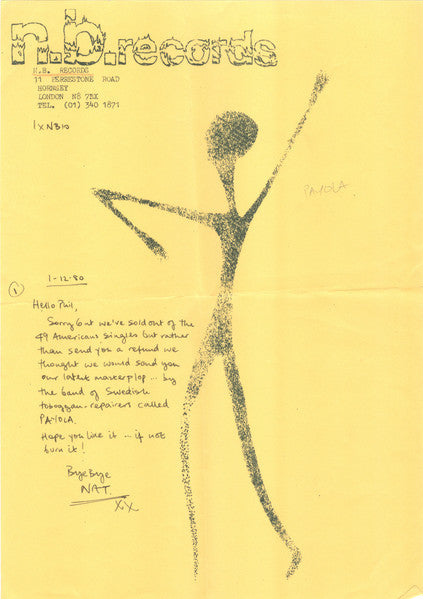 n.b.records
N.B. RECORDS
11 FERRESTONE ROAD
HORNSEY
LONDON N8 7BX
TEL. (01) 340 1871
1 x NB10
PAYOLA
1-12-80
1
Hello Phil,
Sorry but we've sold out of the
49 Americans singles but rather
than send you a refund we
thought we would send you
our latest masterplop ... by
the band of Swedish
toboggan-repairers called
PAYOLA.
Hope you like it ... if not
burn it!
Bye Bye
NAT.
XX